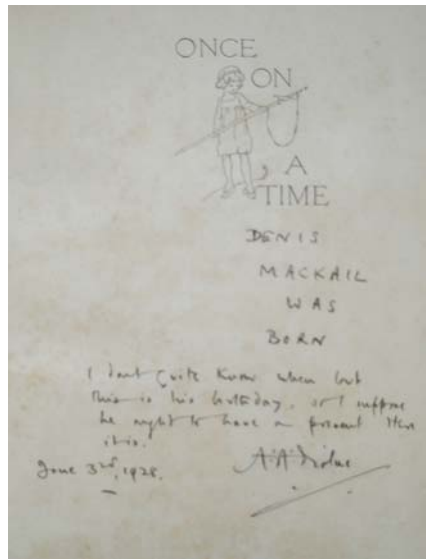 ONCE
ON
A
TIME
DENIS
MACKAIL
WAS
BORN
I don't quite know when but
this is his birthday, so I suppose
he ought to have a present. Here
it is.
A.A. Milne
June 3rd, 1928.